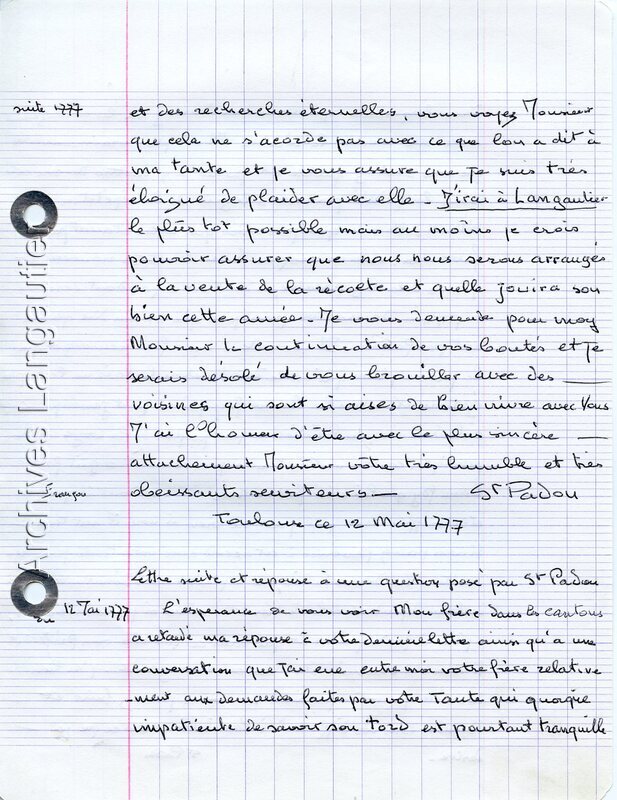 suite 1777
et des recherches éternelles, vous voyez Monsieur
que cela ne s'acorde pas avec ce que lon a dit à
ma tante et je vous assure que je suis très
éloigné de plaider avec elle - J'irai à Langautier
le plus tot possible mais au moins je crois
pouvoir assurer que nous nous serons arrangés
à la vente de la récolte et quelle jouira son
bien cette année. Je vous demande pour moy
Monsieur la continuation de vos bontés et je
serais désolé de vous brouiller avec des
voisines qui sont si aises de bien vivre avec vous
J'ai l'honeur d'être avec le plus sincère
attachement Monsieur vôtre très humble et très
obeissants serviteurs — St Padou
Toulouse ce 12 Mai 1777
lettre suite et réponse à une question posé par St Padou
du 12 Mai 1777
L'esperance de vous voir Mon frère dans les cantons
a retardé ma réponse à votre dernière lettre ainsi qu'a une
conversation que j'ai eue entre moi votre frère relative
-ment aux demandes faites par votre Tante qui quoique
impatiente de savoir son tord est pourtant tranquille
Archives Langautier